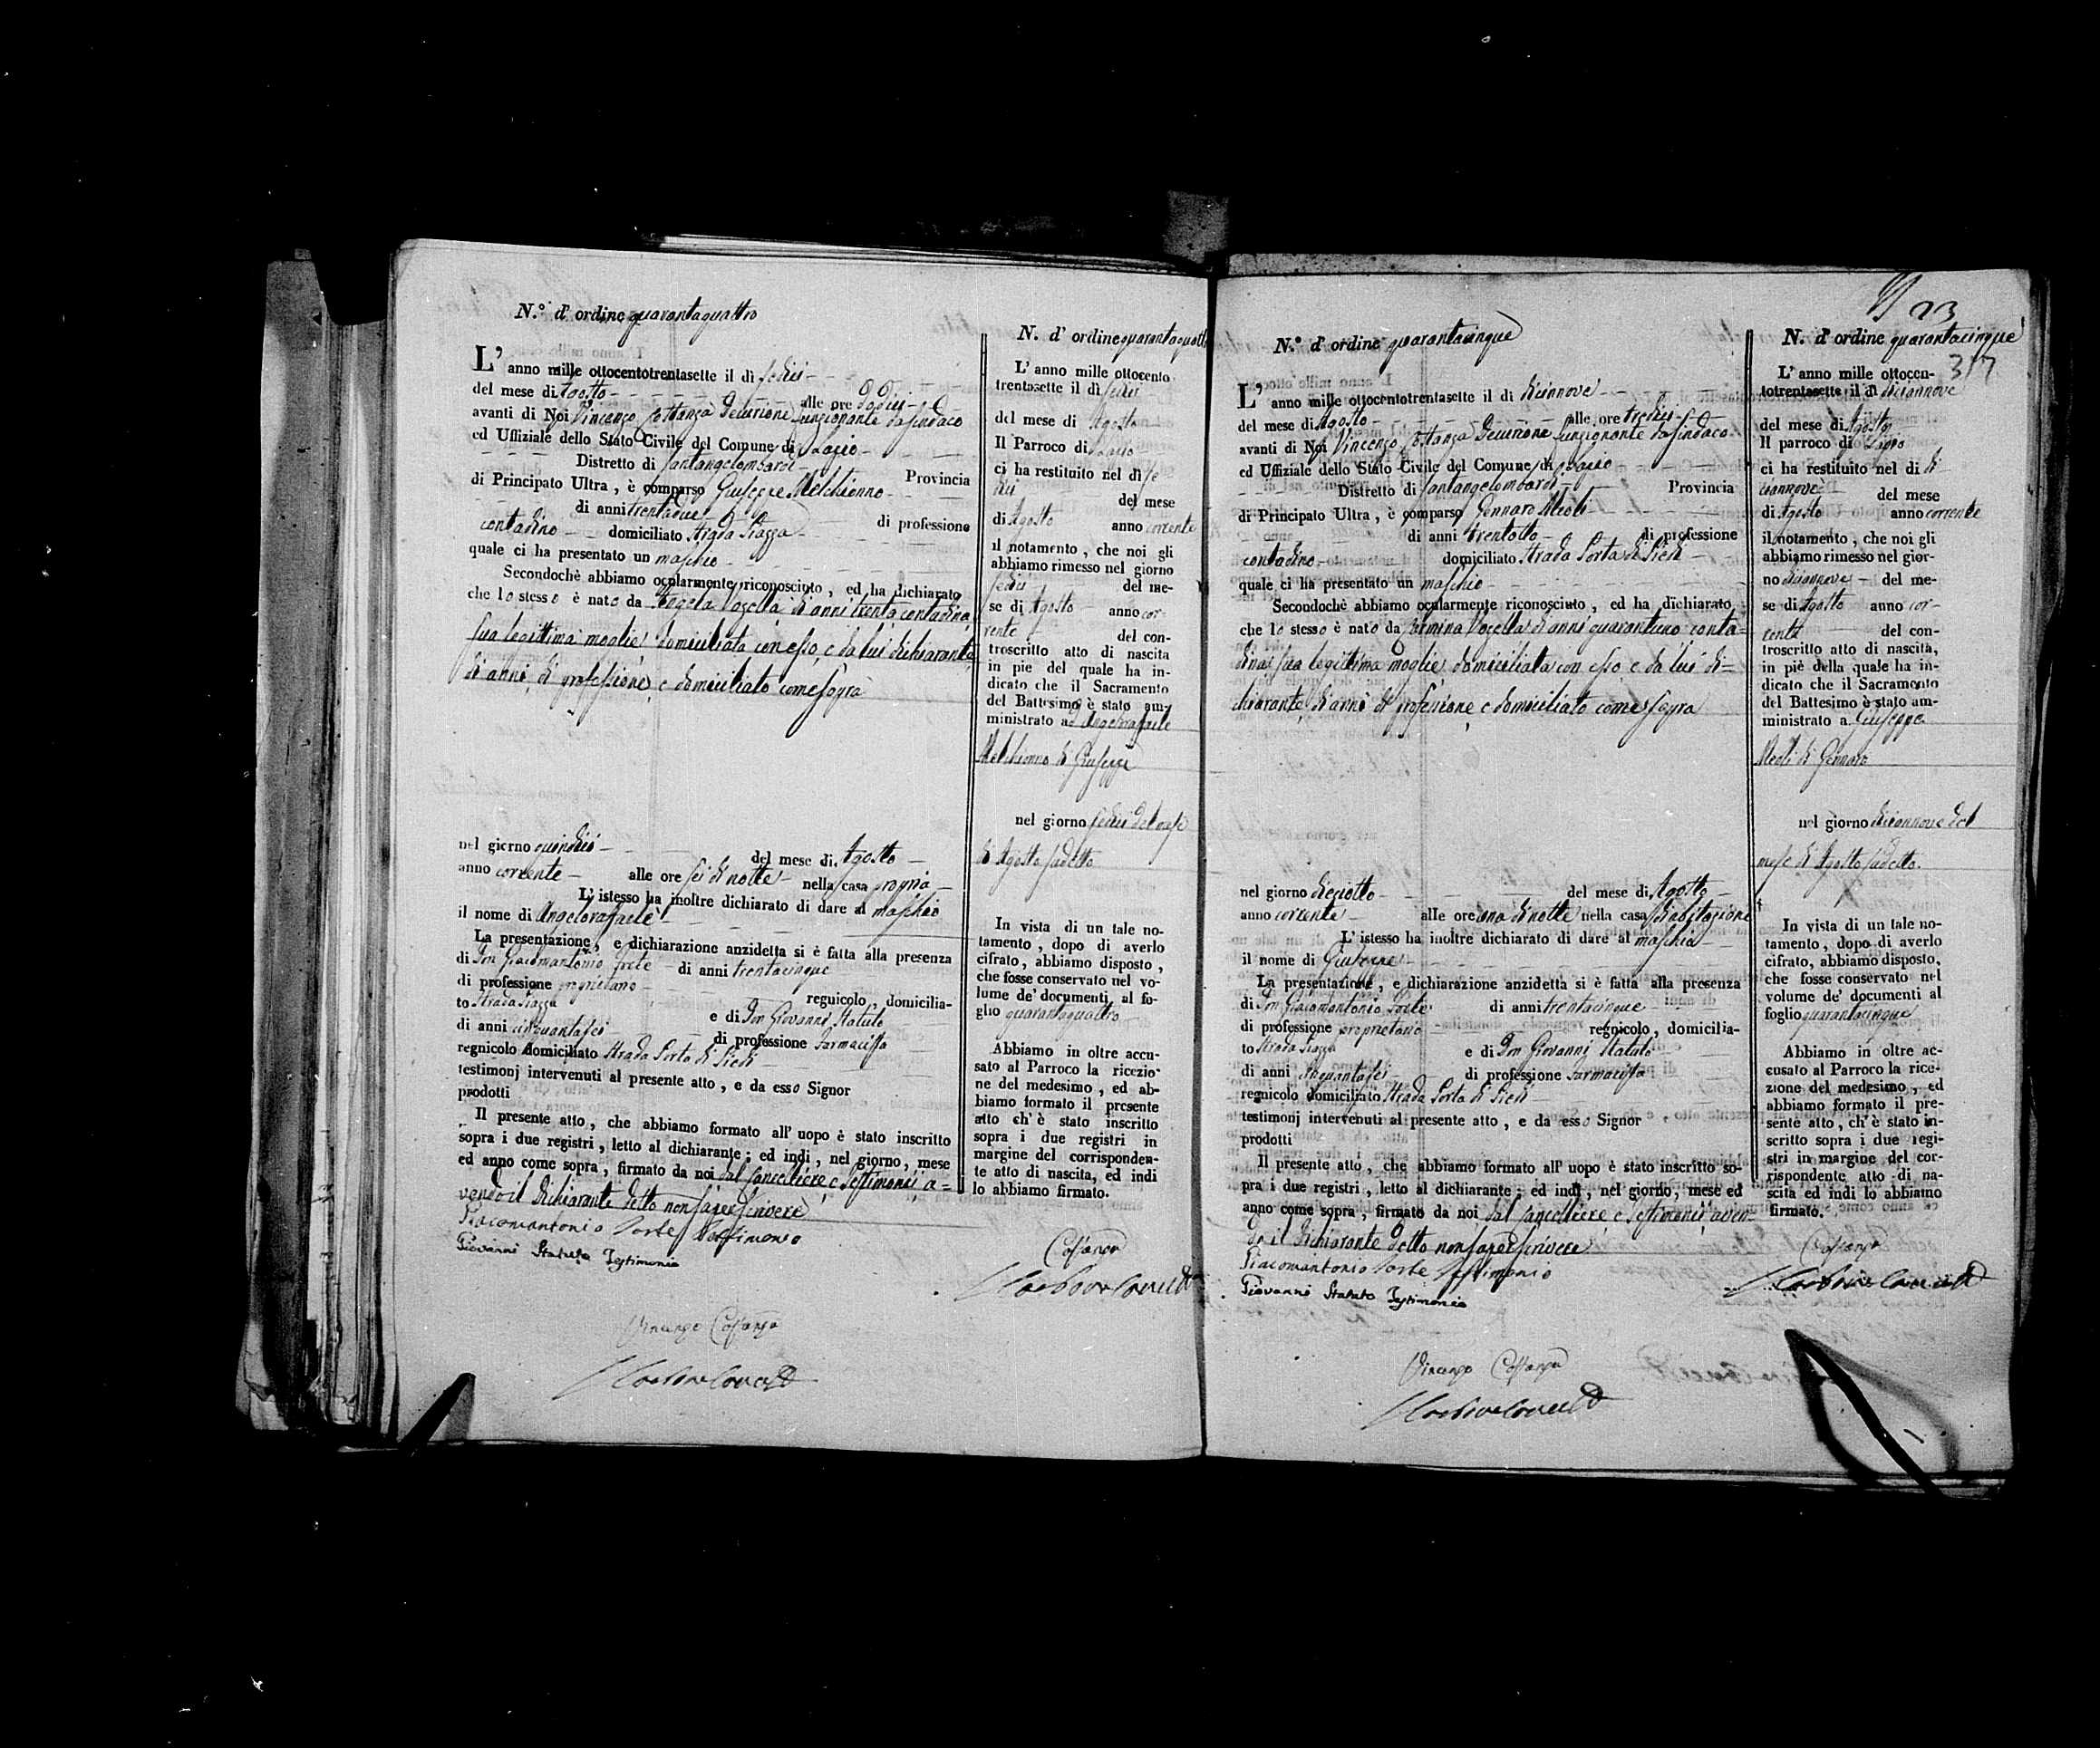 N.° d' ordine quarantaquattro
L' anno mille ottocentotrentasette il dì sedici
del mese di Agosto alle ore dodici
avanti di Noi Vincenzo Costanza Decurione funzionante da Sindaco
ed Uffiziale dello Stato Civile del Comune di Lapio
Distretto di Santangelombardi Provincia
di Principato Ultra, è comparso Giuseppe Melchionno
di anni trentadue di professione
contadino domiciliato Strada Piazza
quale ci ha presentato un maschio
Secondochè abbiamo ocularmente riconosciuto, ed ha dichiarato
che lo stesso è nato da Angela di anni trenta contadina
sua legittima moglie domiciliata con esso, e da lui dichiarante
di anni, di professione, e domiciliato come sopra
nel giorno quindici del mese di Agosto
anno corrente alle ore sei di notte nella casa propria
L' istesso ha inoltre dichiarato di dare al maschio
il nome di Angeloraffaele
La presentazione, e dichiarazione anzidetta si è fatta alla presenza
di Don Giacomantonio Forte di anni trentacinque
di professione proprietario regnicolo, domicilia-
to Strada Piazza e di Don Giovanni Statuto
di anni cinquantasei di professione Farmacista
regnicolo domiciliato Strada Porta di Piedi
testimonj intervenuti al presente atto, e da esso Signor
prodotti
Il presente atto, che abbiamo formato all' uopo è stato inscritto
sopra i due registri, letto al dichiarante; ed indi, nel giorno, mese
ed anno come sopra, firmato da noi dal Cancelliere, e testimonii a=
vendo il dichiarante detto non saper scrivere
Giacomantonio Forte Testimonio
Giovanni Statuto Testimonio
Vincenzo Costanza
N. d' ordine quarantaquatt
L' anno mille ottocento
trentasette il dì sedici
del mese di Agosto
Il Parroco di Lapio
ci ha restituito nel dì se
dici del mese
di Agosto anno corrente
il notamento, che noi gli
abbiamo rimesso nel giorno
sedici del me-
se di Agosto anno cor-
rente del con-
troscritto atto di nascita
in piè del quale ha in-
dicato che il Sacramento
del Battesimo è stato am-
ministrato ad Angeloraffaele
Melchionno di Giuseppe
nel giorno sedici del mese
di Agosto sudetto
In vista di un tale no-
tamento, dopo di averlo
cifrato, abbiamo disposto,
che fosse conservato nel vo-
lume de' documenti al fo-
glio quarantaquattro
Abbiamo in oltre accu-
sato al Parroco la ricezio-
ne del medesimo, ed ab-
biamo formato il presente
atto ch' è stato inscritto
sopra i due registri in
margine del corrisponden-
te atto di nascita, ed indi
lo abbiamo firmato.
Costanza
N.° d' ordine quarantacinque
L' anno mille ottocentotrentasette il di diciannove
del mese di Agosto alle ore tredici
avanti di Noi Vincenzo Costanza Decurione funzionante da Sindaco
ed Uffiziale dello Stato Civile del Comune di Lapio
Distretto di Santangelombardi Provincia
di Principato Ultra, è comparso Gennaro Meoli
di anni trentotto di professione
contadino domiciliato Strada Porta di Piedi
quale ci ha presentato un maschio
Secondochè abbiamo ocularmente riconosciuto, ed ha dichiarato
che lo stesso è nato da Carmina Vocella di anni quarantuno conta=
dina sua legittima moglie, domiciliata con esso, e da lui di=
chiarante, di anni di professione, e domiciliato come sopra
nel giorno dieciotto del mese di Agosto
anno corrente alle ore una di notte nella casa di abitazione
L' istesso ha inoltre dichiarato di dare al maschio
il nome di Giuseppe
La presentazione, e dichiarazione anzidetta si è fatta alla presenza
di Don Giacomantonio Forte di anni trentacinque
di professione proprietario regnicolo, domicilia-
to Strada Piazza e di Don Giovanni Statuto
di anni cinquantasei di professione Farmacista
regnicolo domiciliato Strada Porta di Piedi
testimonj intervenuti al presente atto, e da esso Signor
prodotti
Il presente atto, che abbiamo formato all' uopo è stato inscritto so-
pra i due registri, letto al dichiarante; ed indi, nel giorno, mese ed
anno come sopra, firmato da noi dal Cancelliere, e testimonii aven-
do il dichiarante detto non saper scrivere
Giacomantonio Forte Testimonio
Giovanni Statuto Testimonio
Vincenzo Costanza
23
N. d' ordine quarantacinque
317
L' anno mille ottocen-
totrentasette il di diciannove
del mese di Agosto
Il parroco di Lapio
ci ha restituito nel di di
ciannove del mese
di Agosto anno corrente
il notamento, che noi gli
abbiamo rimesso nel gior-
no diciannove del me-
se di Agosto anno cor-
rente del con-
troscritto atto di nascita,
in piè della quale ha in-
dicato che il Sacramento
del Battesimo è stato am-
ministrato a Giuseppe
Meoli di Gennaro
nel giorno diciannove del
mese di Agosto sudetto.
In vista di un tale no-
tamento, dopo di averlo
cifrato, abbiamo disposto,
che fosse conservato nel
volume de' documenti al
foglio quarantacinque
Abbiamo in oltre ac-
cusato al Parroco la rice-
zione del medesimo, ed
abbiamo formato il pre-
sente atto, ch' è stato in-
scritto sopra i due regi-
stri in margine del cor-
rispondente atto di na-
scita ed indi lo abbiamo
firmato.
Costanza